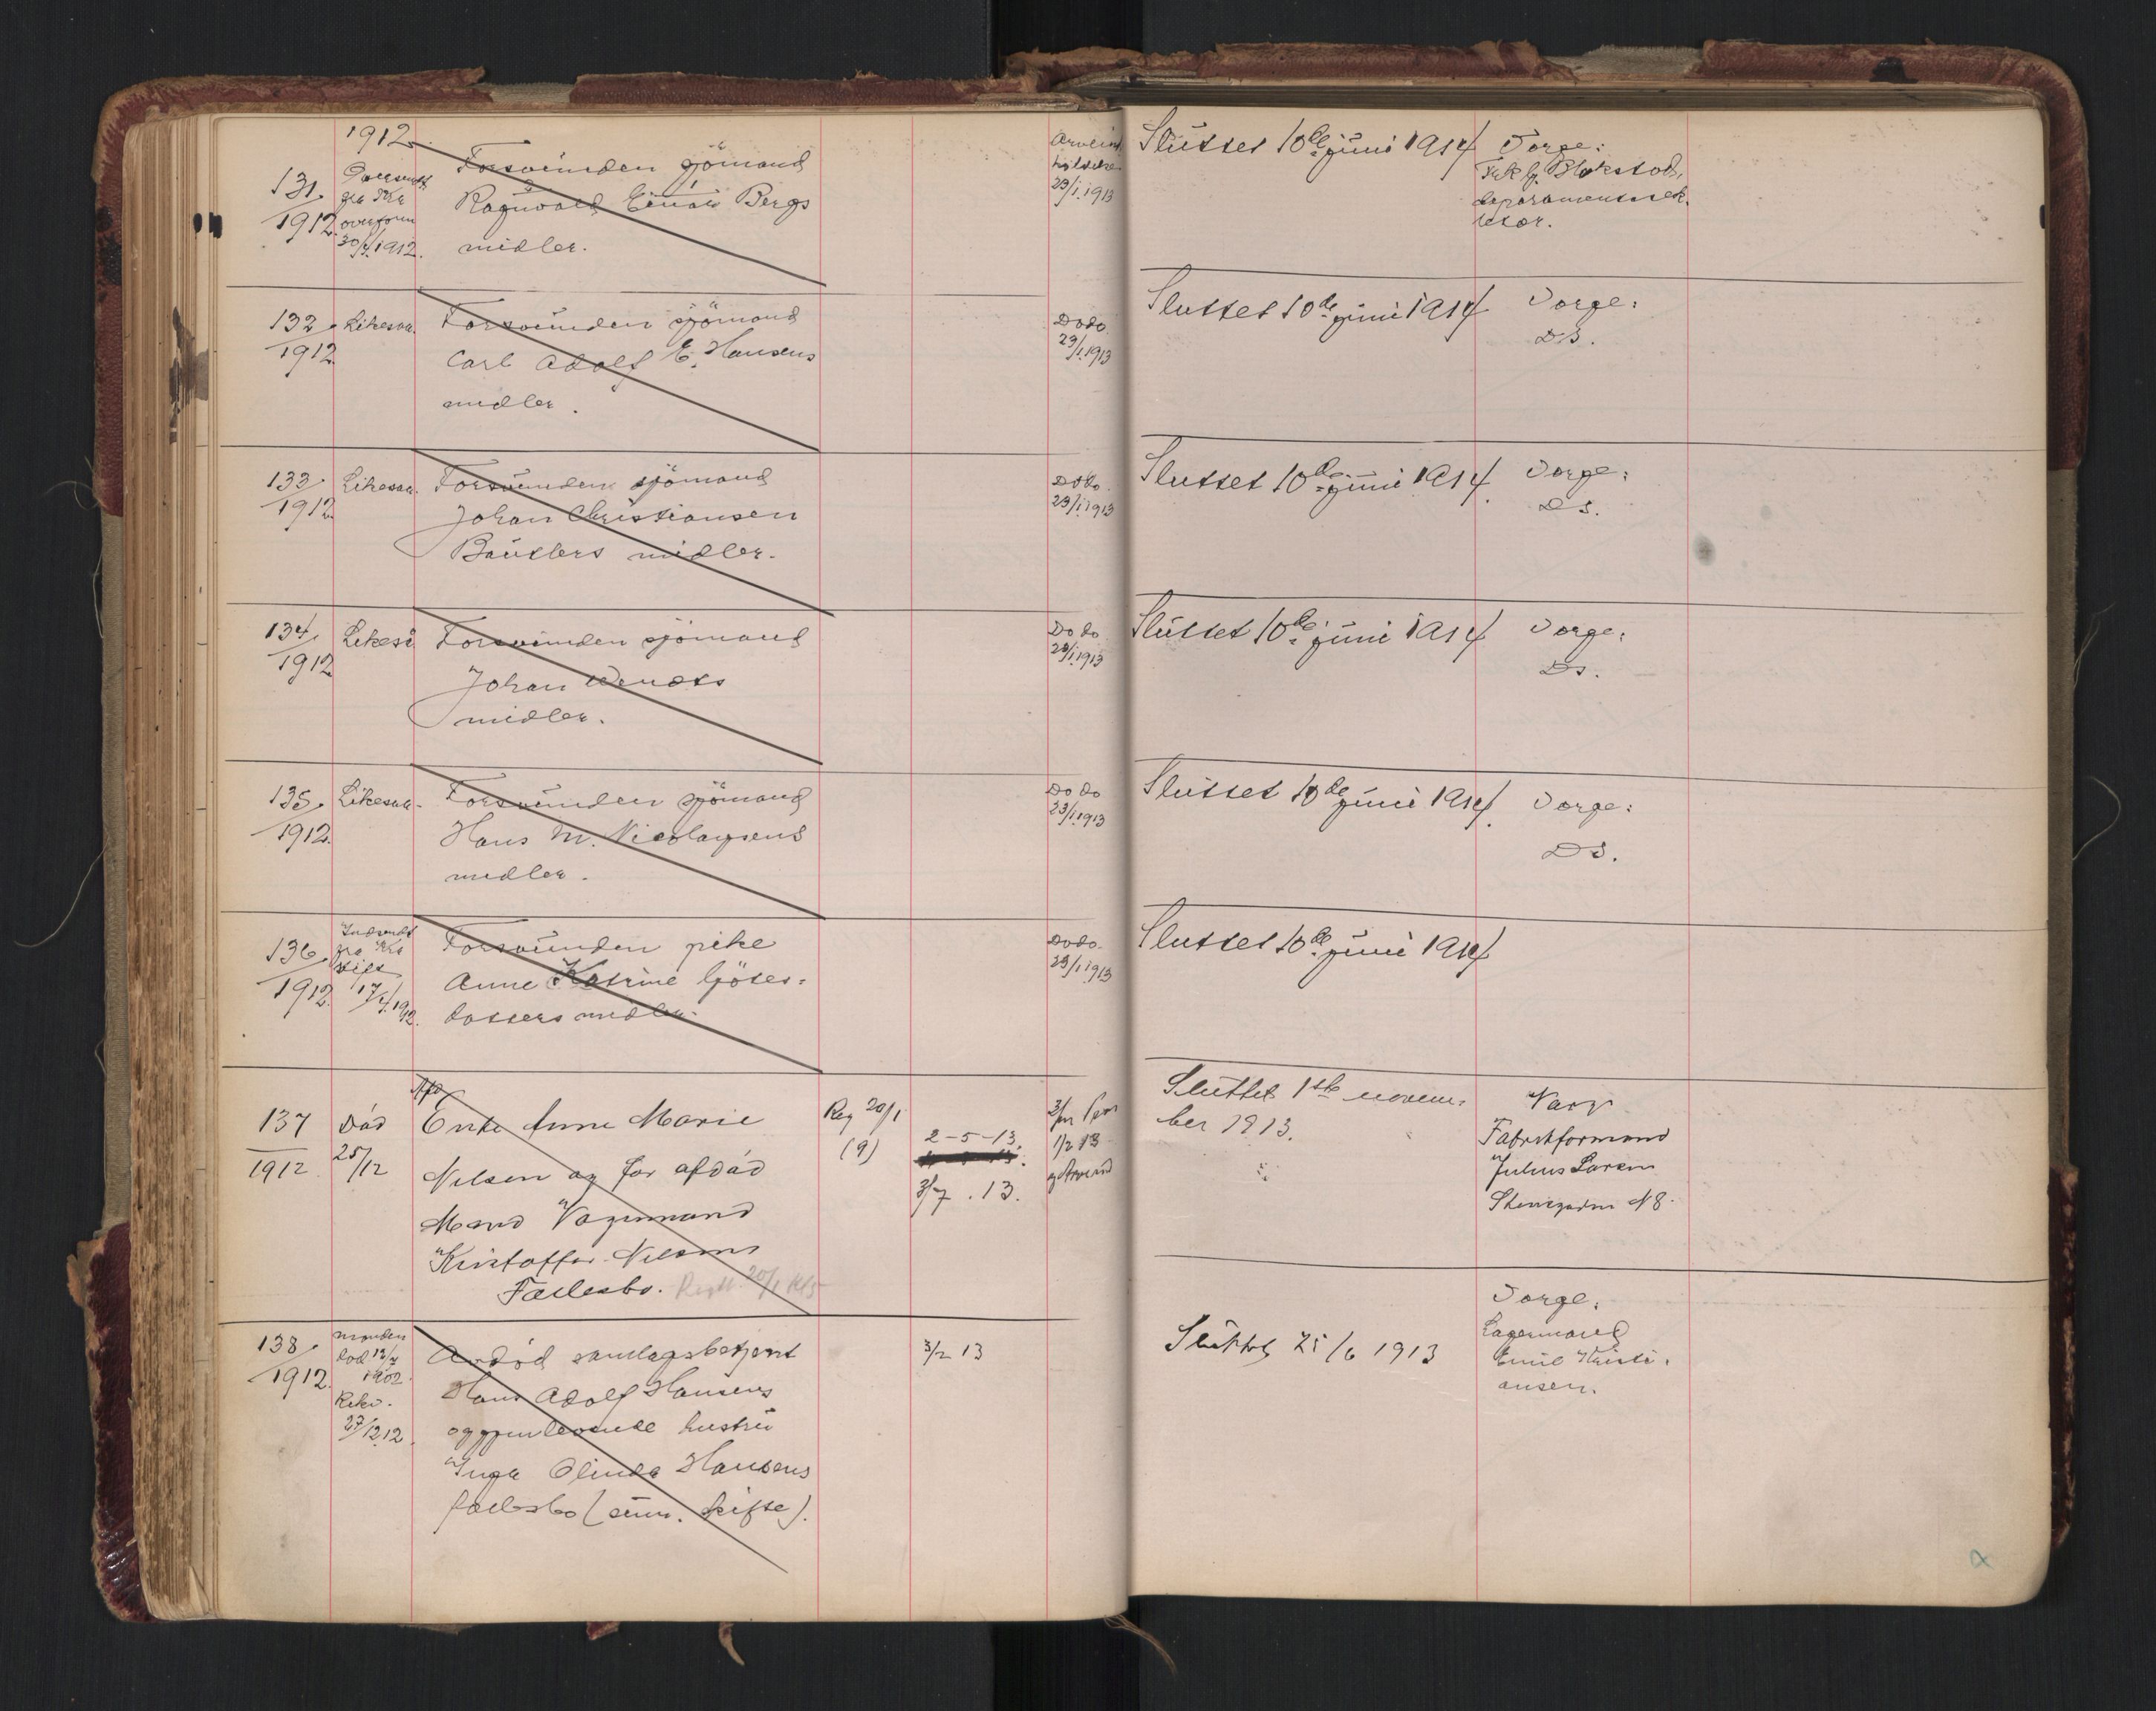 1912
131/1912
fra Kra
overform
30/4 1912.
Forsvunden sjömand
Ragnvald Einar Bergs
midler.
23/1 1913
Sluttet 10de juni 1914
Verge:
132/1912
Likesaa.
Forsvunden sjömand
Carl Adolf E. Hansens
midler.
Dodo
23/1.1913
Sluttet 10de juni 1914
Verge:
Ds.
133/1912
Likesaa.
Forsvunden sjömand
Johan Christiansen
midler.
Dodo.
23/1.1913
Sluttet 10de juni 1914.
Verge:
Ds.
134/1912
Likeså
Forsvunden sjömand
Johan
midler.
Do do
23/1.1913
Sluttet 10de juni 1914
Verge:
Ds.
135/1912.
Likesaa.
Forsvunden sjömand
Hans M. Nicolaysens
midler.
Do do
23/1.1913
Sluttet 10de juni 1914.
Verge:
Ds.
136/1912.
Indsendt
fra Kra
stift
17/4 1912.
Forsvunden pike
Anne Katrine
datters midler.
Dodo.
23/1 1913
Sluttet 10de juni 1914
137/1912
Död
25/12
Enke Anne Marie
Nilsen og før afdöd
Mand Vognmand
Kristoffer Nilsens
Fællesbo.
Reg 20/1
(9)
2-5-13.
3/7.13.
1/2 13
Sluttet 1ste novem-
ber 1913.
Værge
Fabrikformand
Julius Larsen
N 8.
138/1912.
Manden
död 12/7
1902.
Rekv.
27/12.12.
Avdöd samlagsbetjent
Hans Adolf Hansens
og gjenlevende hustru
Inga Olinda Hansens
fællesbo (sum. skifte).
3/2 13
Sluttet 25/6 1913
Verge:
Lagermand
Emil Kristi-
ansen.